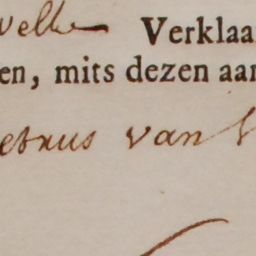 velle Verklaa
en, mits dezen aan
etrus van